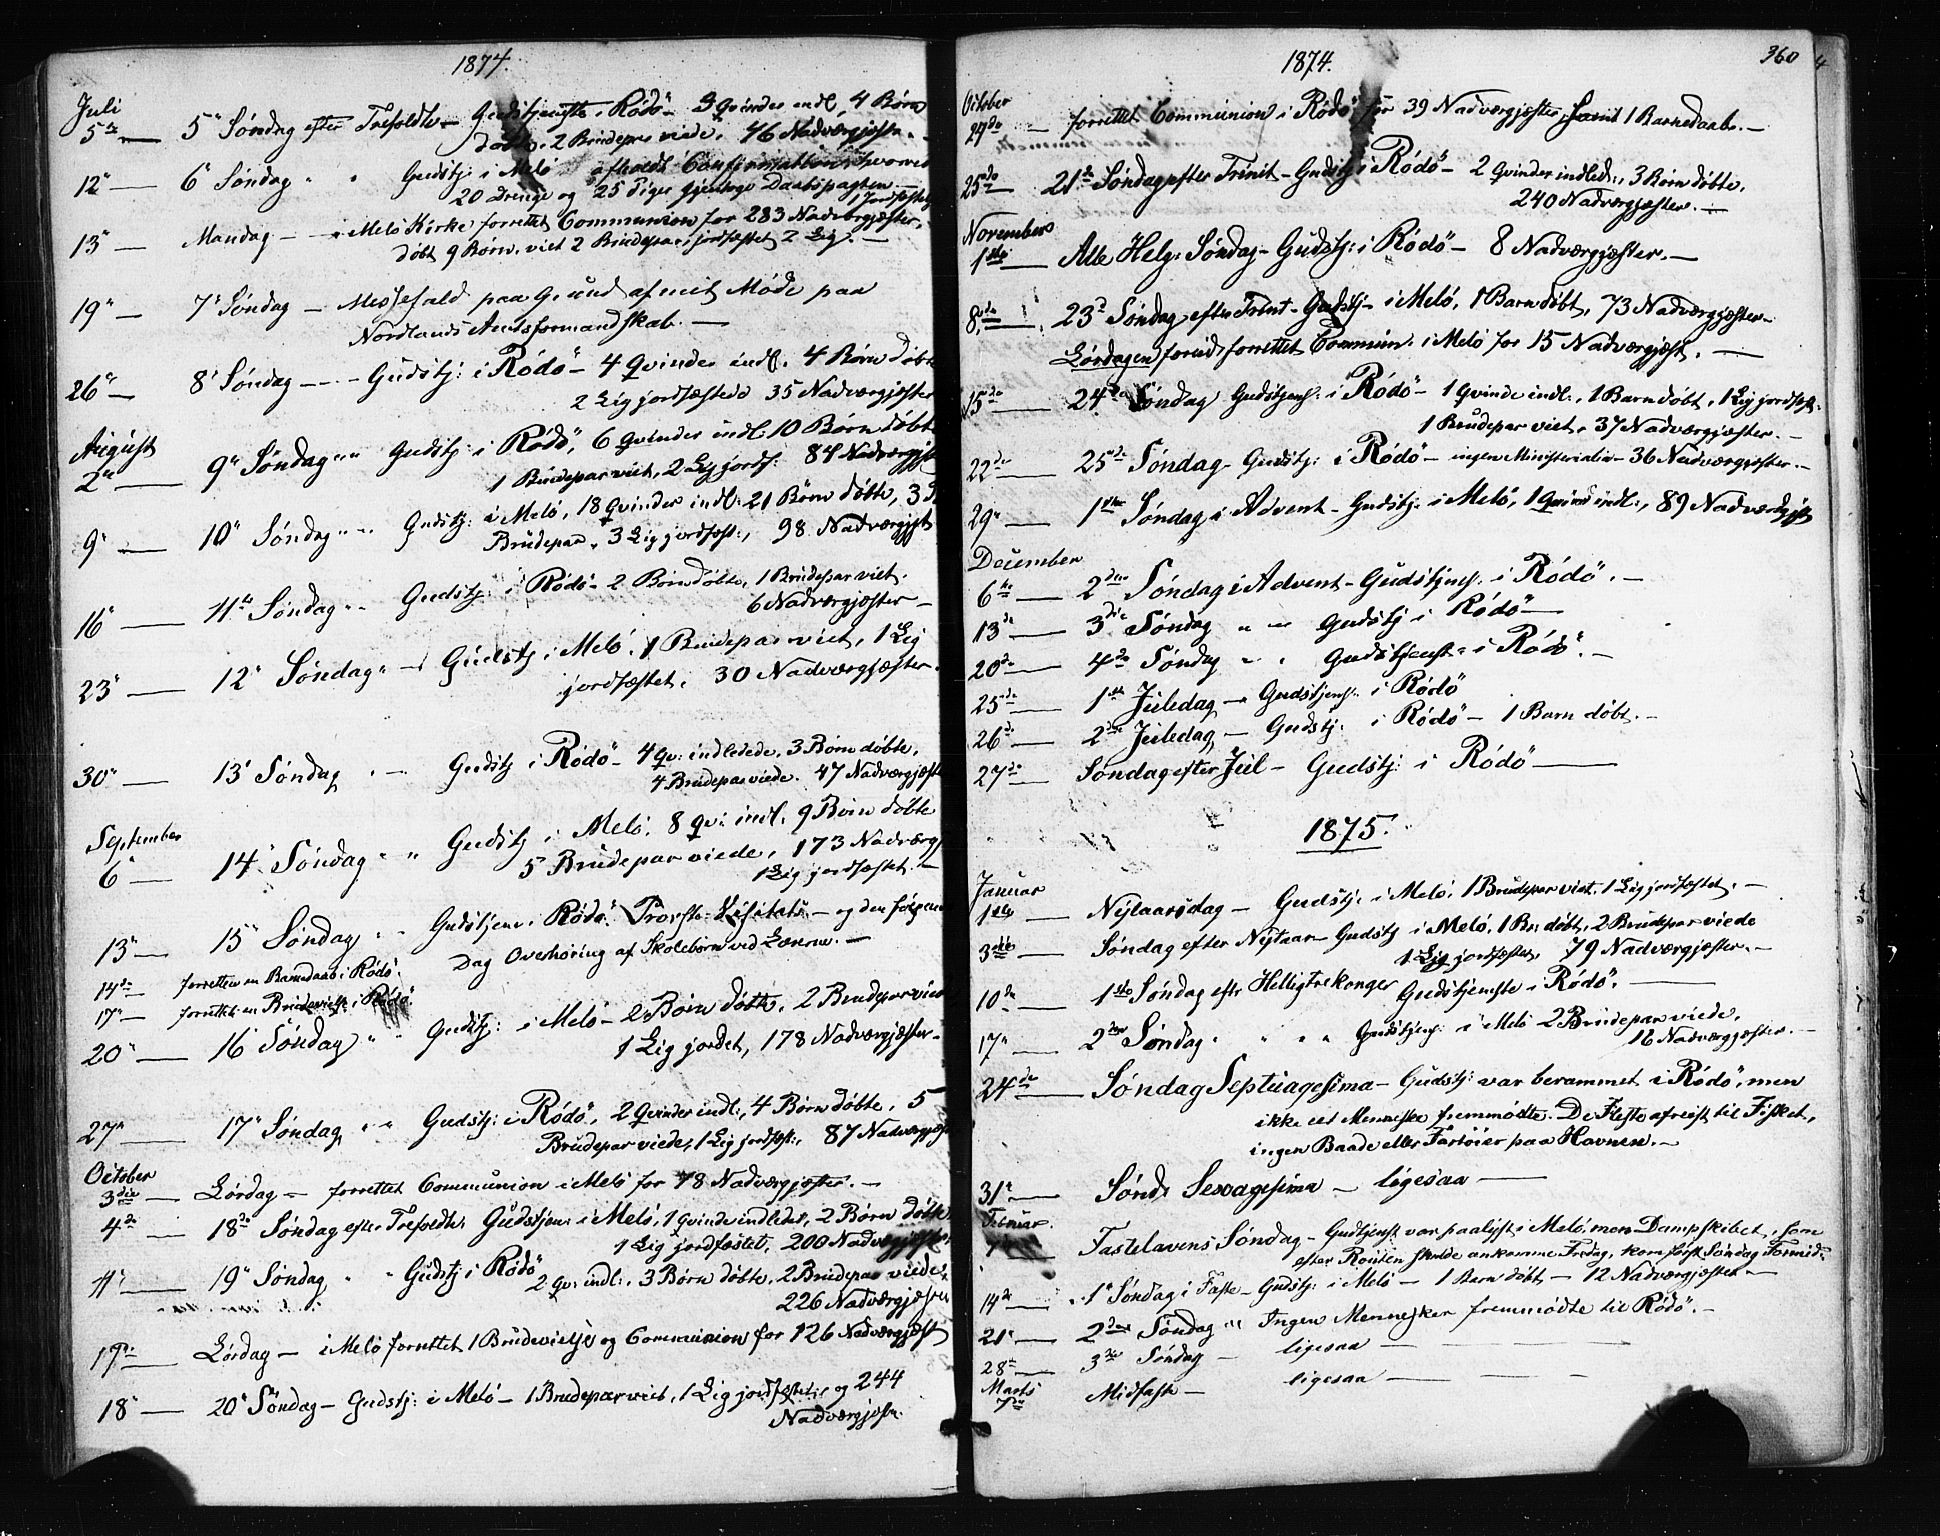 1874.
Juli
5te — 5" Søndag efter Trefoldh. — Gudstjeneste i Rödö — 3 Qvinder indl, 4 Børn
døbte, 2 Brudepar viede, 46 Nadværgjæster.
12" — 6" Søndag " " Gudstj: i Melö afholdt Confirmation hvorved
20 Drenge og 25 Piger gjentog Daabspagten. — 1 jordfæstet
13" — Mandag — i Melö Kirke forrettet Communion for 283 Nadværgjæster,
døbt 9 Børn, viet 2 Brudepar, jordfæstet 2 Lig. —
19" — 7" Søndag — Messefald paa Grund af mit Møde paa
Nordlands Amtsformandskab. —
26" — 8" Søndag — Gudstj: i Rödö — 4 Qvinder indl. 4 Børn døbte
2 Lig jordfæstede 35 Nadværgjæster
August
2" — 9" Søndag " " Gudstj: i Rödö, 6 Qvinder indl: 10 Børn døbt
1 Brudepar viet, 2 Lig jordf. 84 Nadværgj
9" — 10" Søndag " " Gudstj: i Melö, 18 Qvinder indl: 21 Børn døbte, 3
Brudepar, 3 Lig jordfæst:, 98 Nadværgjst
16" — 11te Søndag " " Gudstj: i Rödö — 2 Børn døbte, 1 Brudepar viet.
6 Nadværgjæster —
23" — 12" Søndag " — Gudstj: i Melö, 1 Brudepar viet, 1 Lig
jordfæstet, 30 Nadværgjæster.
30" — 13" Søndag " — Gudstj i Rödö — 4 Qv: indledede, 3 Børn døbte,
4 Brudepar viede. 47 Nadværgjæste
September
6" — 14" Søndag " " Gudstj i Melö. 8 Qv: indl. 9 Børn døbte
5 Brudepar viede, 173 Nadværg
1 Lig jordfæstet. —
13" — 15" Søndag " " Gudstjen: i Rödö. Provste-Visitats — og den følgende
Dag Overhøring af Skolebørn ved Læreren. —
14de — forrettet en Barnedaab i Rödö.
17" — forrettet en Brudevielse i Rödö
20" — 16" Søndag " " Gudstj: i Melö — 2 Børn døbte, 2 Brudepar viede
1 Lig jordet, 178 Nadværgjæster.
27" — 17" Søndag " " Gudstj: i Rödö, 2 Qvinder indl:, 4 Børn døbte, 5
Brudepar viede, 1 Lig jordfæst:, 87 Nadværgjæst
October
3die — Lørdag — forrettet Communion i Melö for 78 Nadværgjæster. —
4de — 18de Søndag efter Trefoldh: Gudstjen: i Melö, 1 Qvinde indledet, 2 Børn døbte
1 Lig jordfæstet, 200 Nadværgjæster
11" — 19" Søndag " " Gudstj i Rödö
2 Qv: indl:, 3 Børn døbte, 2 Brudepar viede.
226 Nadværgjæster
17de — Lørdag — i Melö forrettet 1 Brudevielse og Communion for 126 Nadværgjæst
18" — 20" Søndag — Gudstj: i Melö — 1 Brudepar viet, 1 Lig jordfæstet, og 244
Nadværgjæster.
1874.
360
October
forrettet Communion i Rödö for 39 Nadværgjæster, samt 1 Barnedaab. —
25de — 21de Søndag efter Trinit — Gudstj i Rödö — 2 Qvinder indled:, 3 Børn døbte,
240 Nadværgjæster. —
November
1ste — Alle Helg: Søndag — Gudstj: i Rödö — 8 Nadværgjæster. —
8de — 23d Søndag efter Trint — Gudstj — i Melö, 1 Barn døbt, 73 Nadværgjæster —
Lørdagen forud forrettet Commun: i Melö for 15 Nadværgjæst. —
15de — 24de Søndag Gudstjenst: i Rödö — 1 Qvinde indl:, 1 Barn døbt, 1 Lig jordfæst:
1 Brudepar viet, 37 Nadværgjæster. —
22de — 25de Søndag — Gudstj: i Rödö — ingen Ministerialia — 36 Nadværgjæster. —
29" — 1ste Søndag i Advent — Gudstj: i Melö, 1 Qvinde indl:, 89 Nadværdgjst
December
6te — 2den Søndag i Advent — Gudstjenes. i Rödö. —
13de — 3die Søndag " — Gudstj i Rödö —
20de — 4de Søndag " " Gudstjenest: i Rödö. —
25de — 1ste Juledag — Gudstjenes: i Rödö
26de — 2den Juledag — Gudstj: i Rödö — 1 Barn døbt. —
27de — Søndag efter Juel — Gudstj: i Rödö —
1875.
Januar
1ste — Nytaarsdag — Gudstj: i Melö, 1 Brudepar viet, 1 Lig jordfæstet. —
3die — Søndag efter Nytaar — Gudstj i Melö, 1 Bn: døbt, 2 Brudepar viede
1 Lig jordfæstet, 79 Nadværgjæster. —
10de — 1ste Søndag eftr Helligtrekonger Gudstjeneste i Rödö. —
17" — 2den Søndag " " " Gudstjenes: i Melö 2 Brudepar viede,
16 Nadværgjæster. —
24de — Søndag Septuagesima — Gudstj: var berammet i Rödö, men
ikke eet Menneske fremmødte. De Fleste afreist til Fisket,
ingen Baade eller Fartøier paa Havnen. —
31te — Sønd: Sexagesima — ligesaa —
Februar
7 — Fastelavens Søndag — Gudstjenst var paalyst i Melö, men Dampskibet, som
efter Routen skulde ankomme Fredag, kom først Søndag Formid:
14de — 1" Søndag i Faste — Gudstj: i Melö — 1 Barn døbt — 12 Nadværgjæster —
21" — 2den Søndag " " Ingen Mennesker fremmødte til Rödö. —
28de — 3die Søndag — ligesaa —
Marts
7de Midfaste — ligesaa —